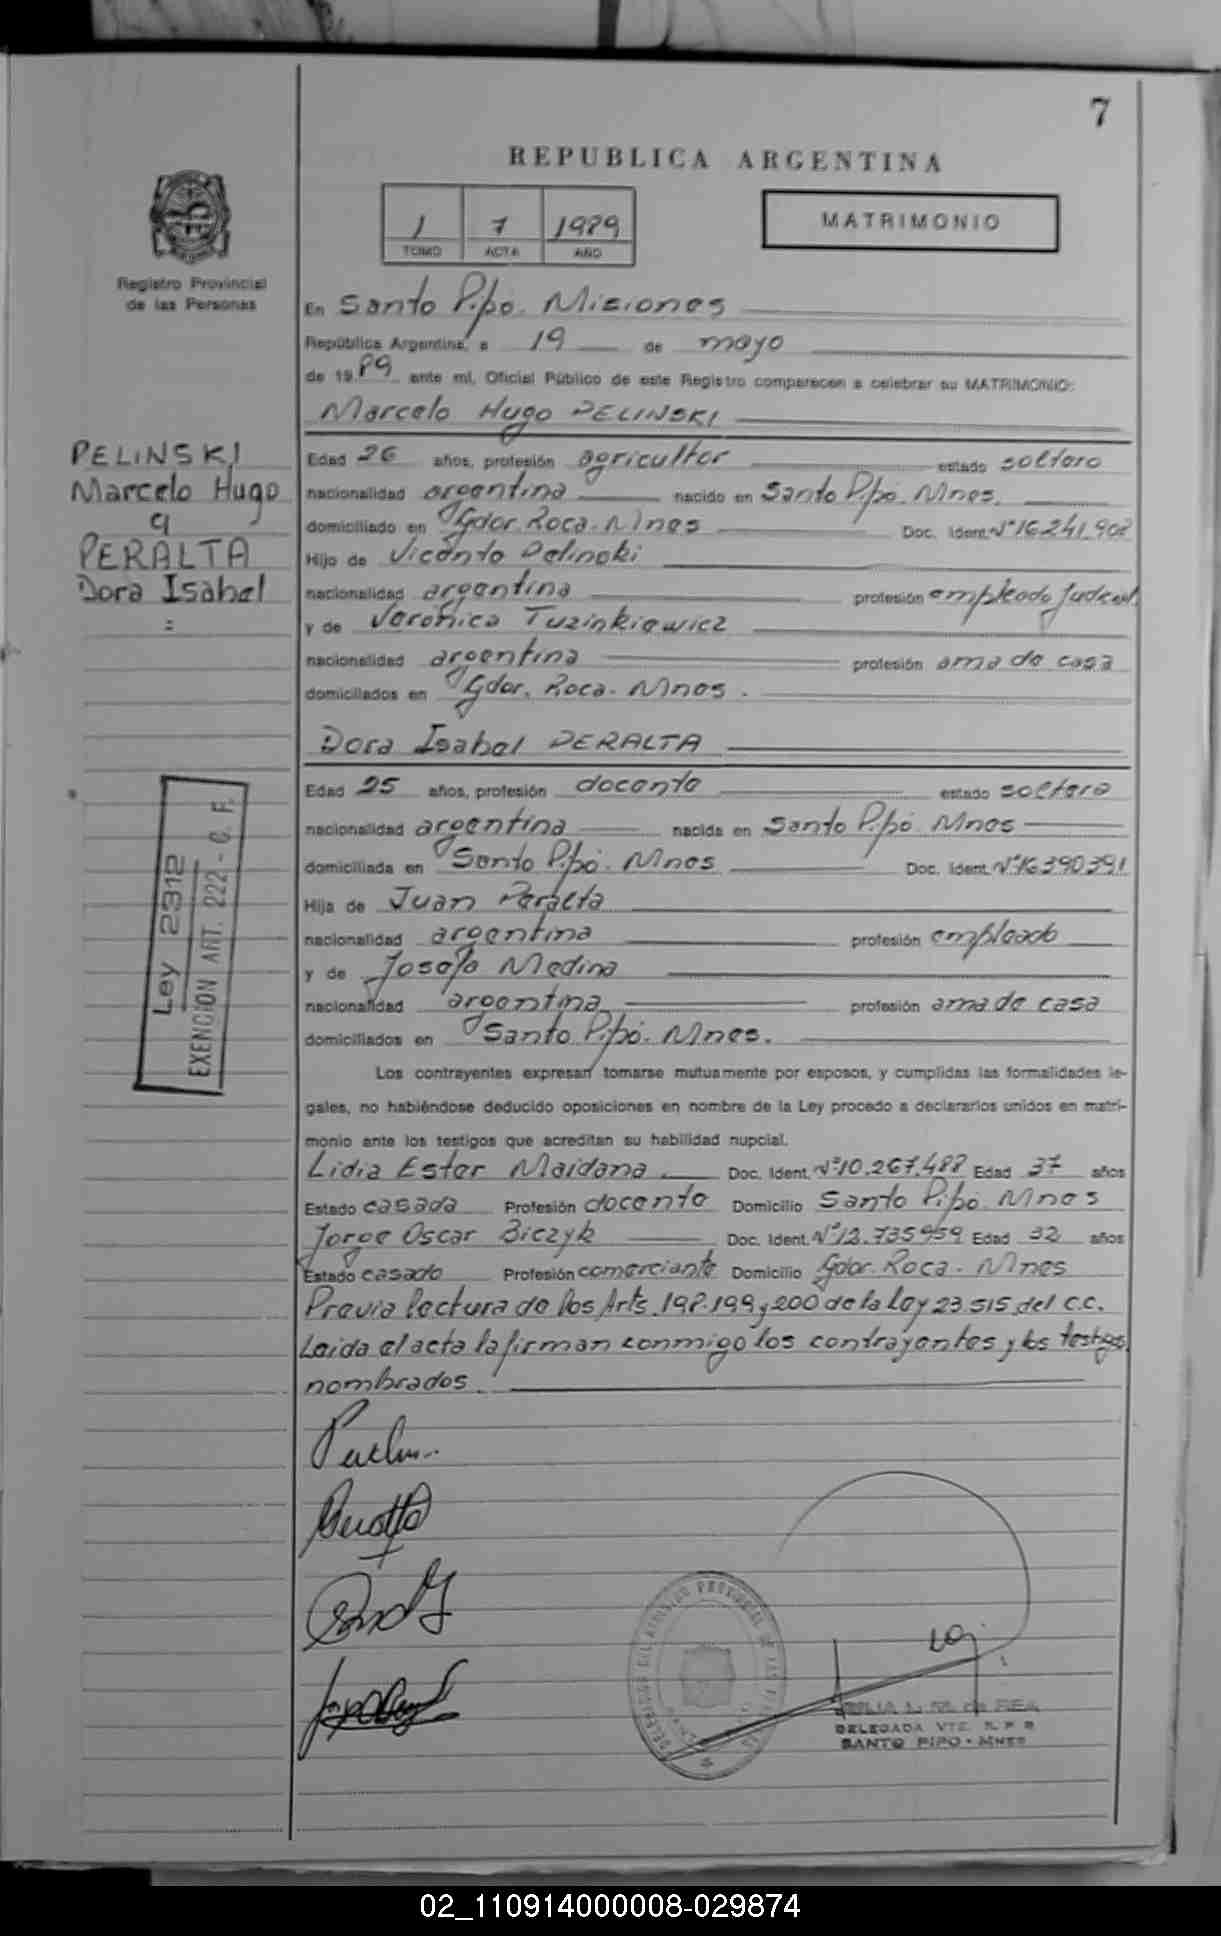 7
REPUBLICA ARGENTINA
1 7 1989
TOMO ACTA AÑO
MATRIMONIO
Registro Provincial
de las Personas
En Santo Pipó. Misiones
República Argentina, a 19 de mayo
de 19 89 ante mí, Oficial Público de este Registro comparecen a celebrar su MATRIMONIO:
Marcelo Hugo PELINSKI
PELINSKI
Marcelo Hugo
PERALTA
Dora Isabel
=
Edad 26 años, profesión agricultor estado soltero
nacionalidad argentina nacido en Santo Pipó. Mnes.
domiciliado en Gdor. Roca. Mnes Doc. Ident. Nº 16.241.902
Hijo de Vicente Pelinski
nacionalidad argentina profesión empleado judicial.
y de Verónica Tuzinkiewicz
nacionalidad argentina profesión ama de casa
domiciliados en Gdor. Roca. Mnes.
Dora Isabel PERALTA
Edad 25 años, profesión docente estado soltera
nacionalidad argentina nacida en Santo Pipó. Mnes
domiciliada en Santo Pipó. Mnes Doc. Ident. Nº 16.390.391
Hija de Juan Peralta
nacionalidad argentina profesión empleado
y de Josefa Medina
nacionalidad argentina profesión ama de casa
domiciliados en Santo Pipó. Mnes.
Ley 2312
EXENCION ART. 222 - C. F.
Los contrayentes expresan tomarse mutuamente por esposos, y cumplidas las formalidades le-
gales, no habiéndose deducido oposiciones en nombre de la Ley procedo a declararlos unidos en matri-
monio ante los testigos que acreditan su habilidad nupcial.
Lidia Ester Maidana Doc. Ident. Nº 10.267.488 Edad 37 años
Estado casada Profesión docente Domicilio Santo Pipó. Mnes
Jorge Oscar Biczyk Doc. Ident. Nº 12.735959 Edad 32 años
Estado casado Profesión comerciante Domicilio Gdor. Roca. Mnes
Previa lectura de los Arts. 198.199 y 200 de la Ley 23.515 del C.C.
Leida el acta la firman conmigo los contrayentes y los testigos
nombrados.
DE REA
DELEGADA VTE. R. P. P.
SANTO PIPO - MNES
02_110914000008-029874